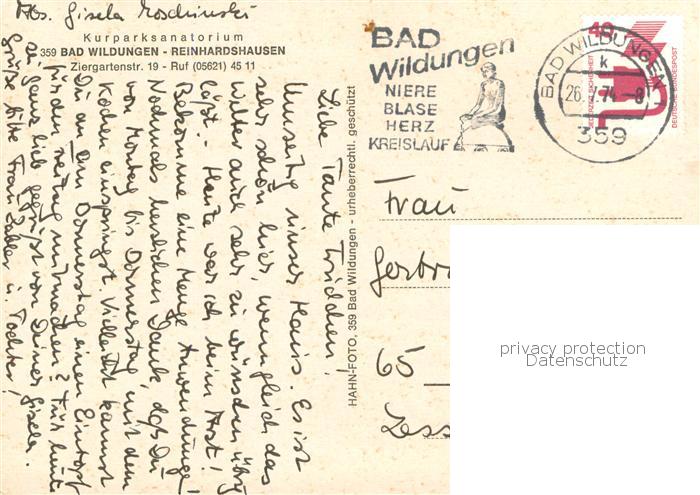 Abs. Gisela Moschinski
Kurparksanatorium
359 BAD WILDUNGEN - REINHARDSHAUSEN
Ziergartenstr. 19 - Ruf (05621) 45 11
Liebe Tante Trudchen!
Umseitig unser Haus. Es ist
sehr schön hier, wenngleich das
Wetter auch sehr zu wünschen übrig
läßt. Heute war ich beim Arzt!
Bekomme eine Menge Anwendungen!
Nochmals herzlichen Dank, daß Du
von Montag bis Donnerstag mit dem
Kochen einspringst. Vielleicht kannst
Du an dem Donnerstag einen Eintopf
für den Freitag mitmachen? Für heute
sei ganz lieb gegrüßt von Deiner Gisela.
Grüße bitte Frau u. Tochter!
HAHN-FOTO, 359 Bad Wildungen - urheberrechtl. geschützt
BAD
Wildungen
NIERE
BLASE
HERZ
KREISLAUF
BAD WILDUNGEN 1
k
26. 74 - 8
359
40
JEDERZEIT SICHERHEIT
DEUTSCHE BUNDESPOST
Frau
Gertr
65
Zess
privacy protection
Datenschutz